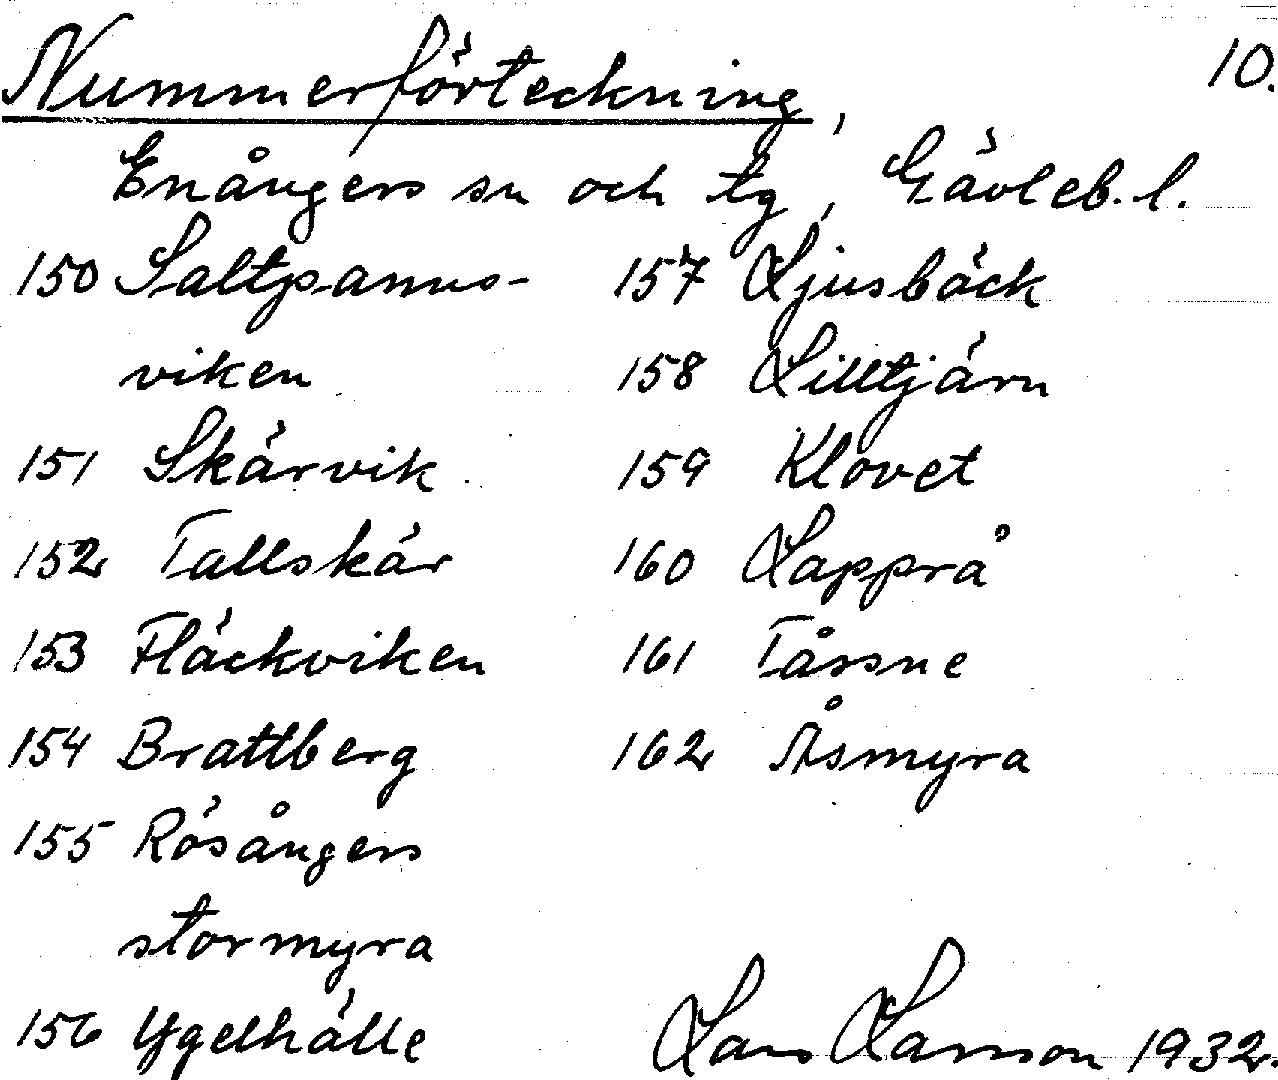 10.
Nummerförteckning,
Enångers sn och tg, Gävleb. l.
150 Saltpanns-
viken
151 Skärvik
152 Tallskär
153 Fläckviken
154 Brattberg
155 Rösångers
stormyra
156 Ygelhälle
157 Ljusbäck
158 Lilltjärn
159 Klovet
160 Lapprå
161 Tåssne
162 Åsmyra
Lars Larsson 1932.